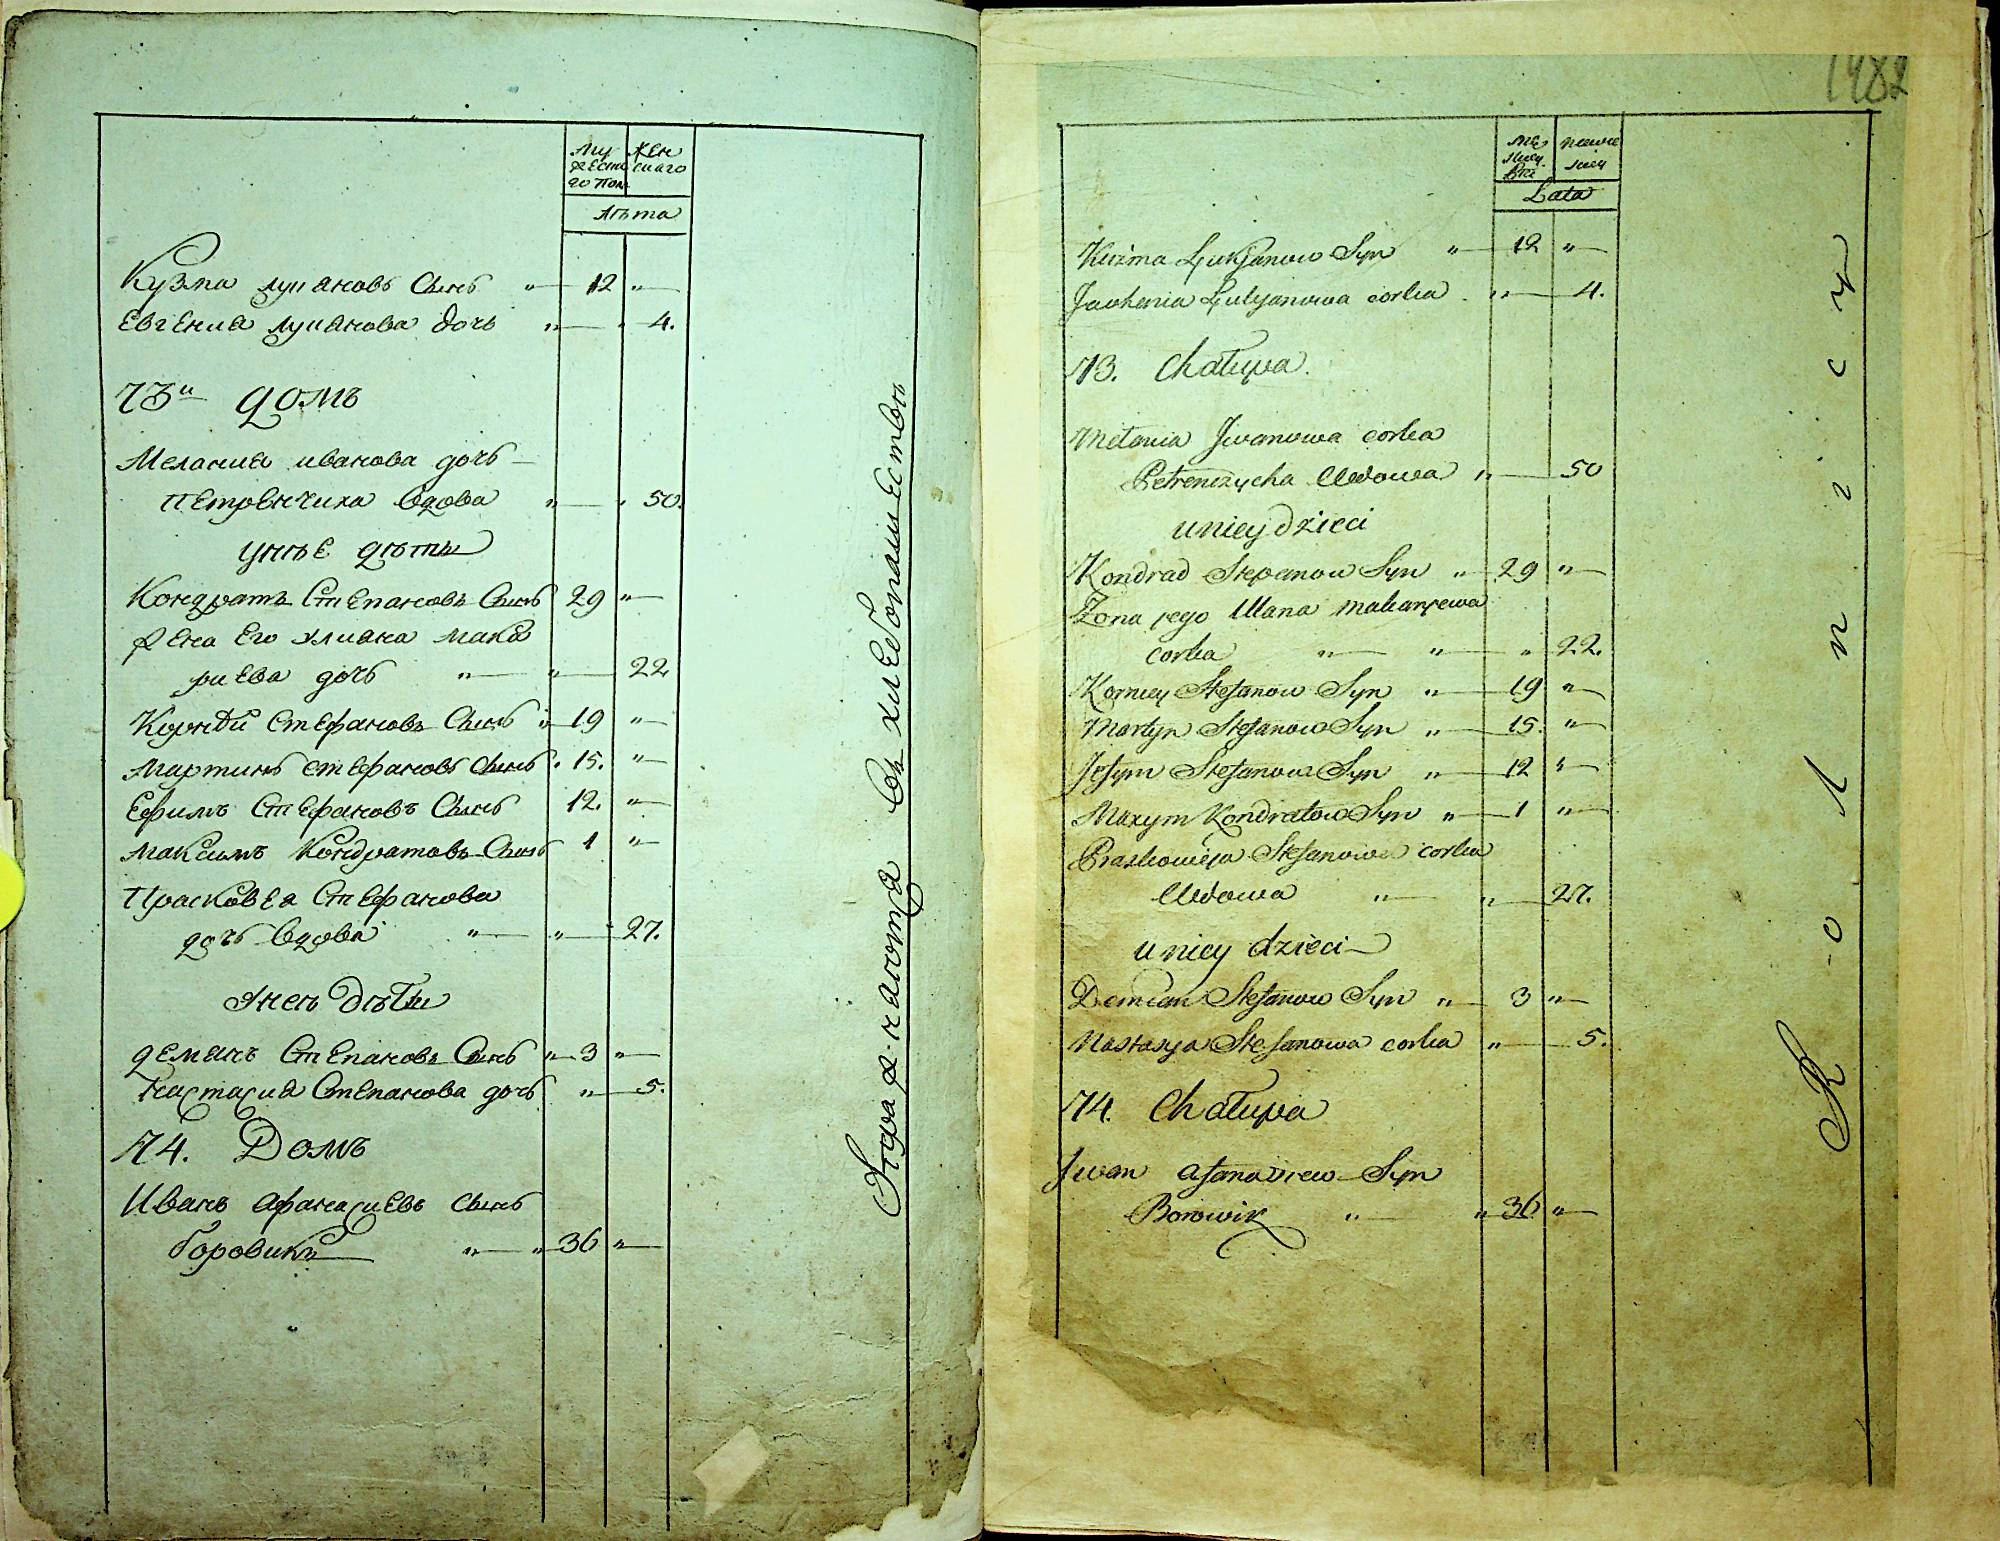 Му жеста го пола
Жен скаго
лѣта
Кузма лукяновъ Сынъ " 12 "
Евгения лукянова дочь " " 4.
73й домъ
Мелания иванова дочь
петренчиха вдова " " 50.
унѣе дѣти
Кондратъ Степановъ Сынъ 29 "
жена Его улиана мака
риева дочь " " 22
Корнѣй Стефановъ Сынъ " 19 "
Мартинъ стефановъ Сынъ " 15. "
Ефимъ Стефановъ Сынъ 12. "
Максимъ Кондратовъ Сынъ 1 "
Прасковея Стефанова
дочь вдова " " 27.
унеѣ дѣти
демянъ Степановъ Сынъ " 3 "
Настасия Степанова дочь " 5.
74. Домъ
Иванъ афанасиевъ сынъ
боровикъ " " 36 "
въ хлебопашествѣ
1482
Lata
Kuźma Łukjanow Syn " 12 "
Jauhenia Łukjanowa corka " 4.
73. Chałupa.
Mełania Jwanowa corka
Petrenczycha Wdowa " 50
u niey dzieci
Kondrad Stepanow Syn " 29 "
Zona jego Ulana makarjewa
corka " " " 22.
Korniey Stefanow Syn " 19 "
Martyn Stefanow Syn " 15. "
Jefym Stefanow Syn " 12 "
Maxym Kondratow Syn " 1 "
Praskowieja Stefanowa corka
Wdowa " " 27.
u niey dzieci
Demian Stefanow Syn " 3 "
Nastasya Stefanowa corka " 5.
74. Chałupa
Jwan afanasiew Syn
Borowik " " 36 "
R o l n i c y